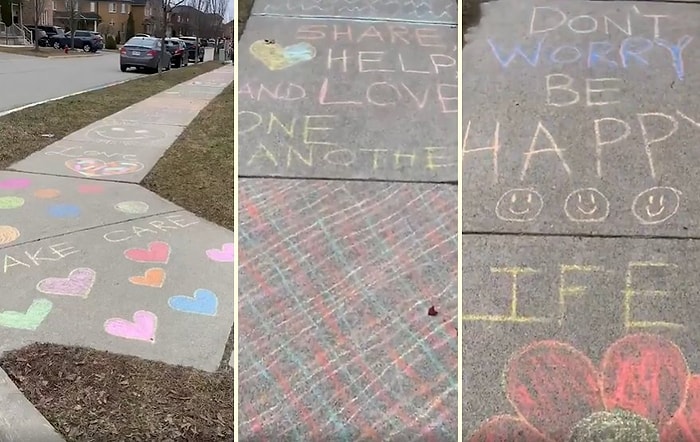 AKE CARE
SHARE
HELP
AND LOVE
ONE
ANOTHE
DON'T
WORRY
BE
HAPPY
IFE